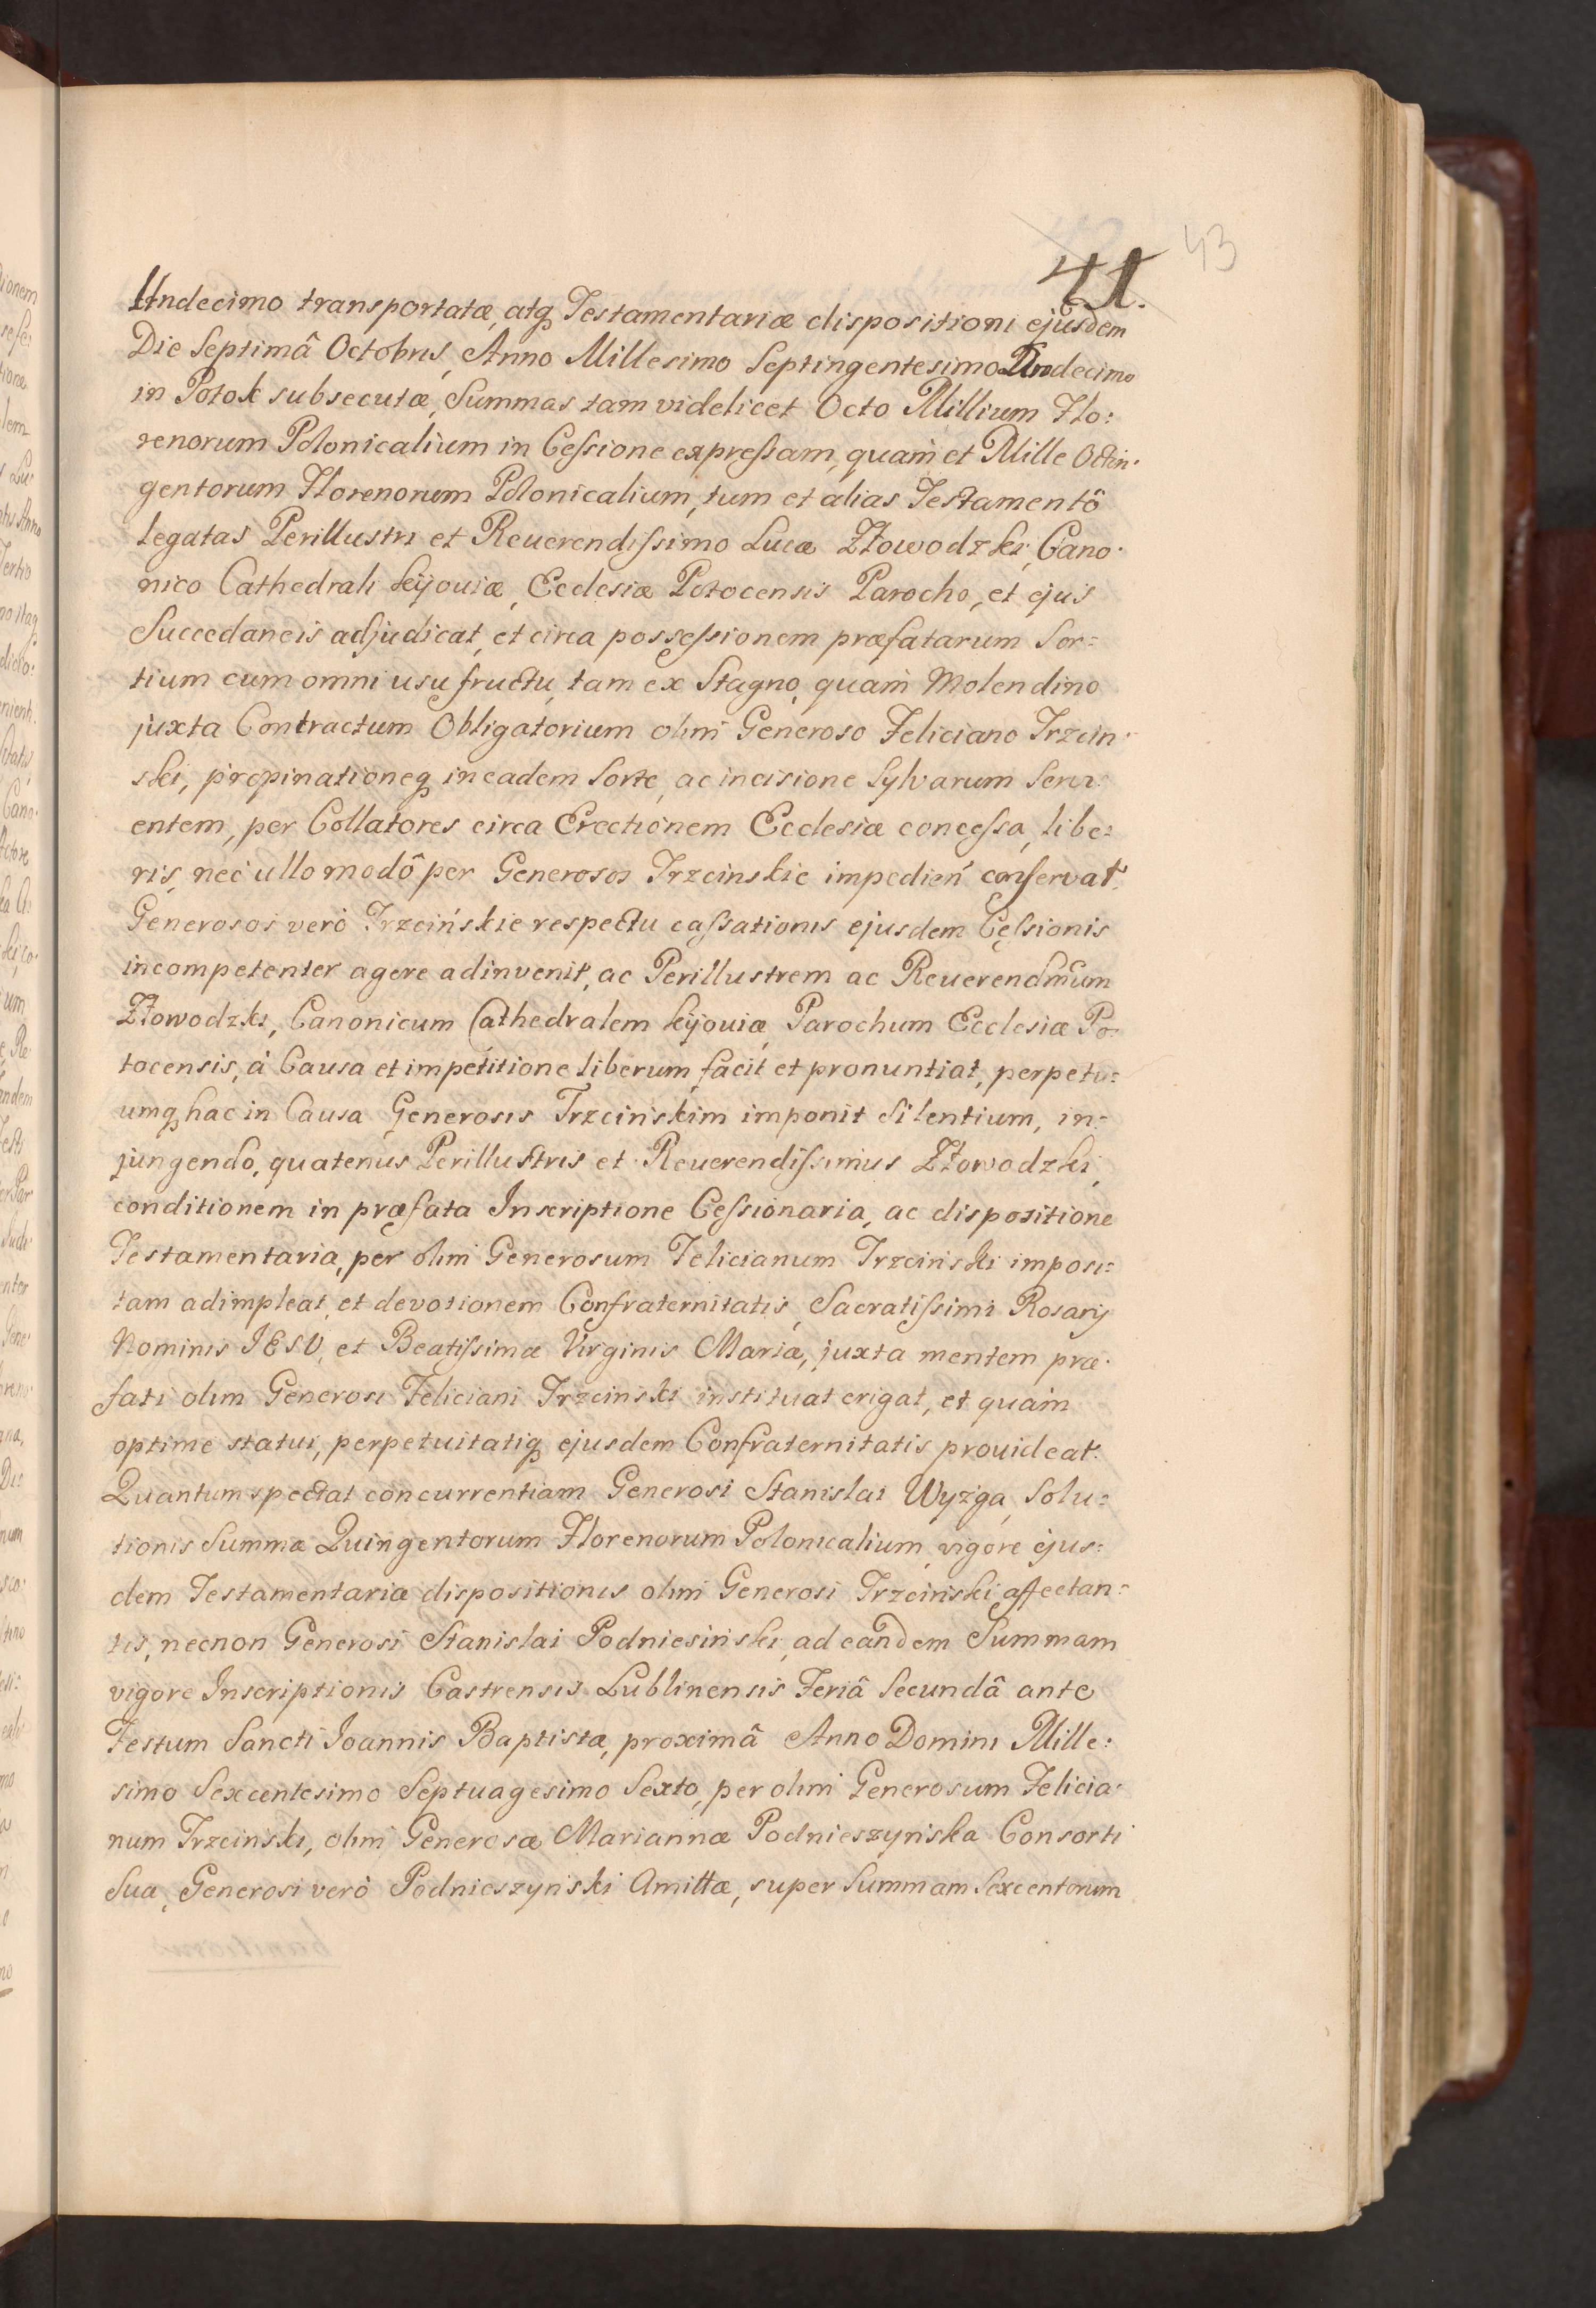 41.
43
Undecimo transportatæ, atq Testamentariæ dispositioni ejusdem
Die Septimâ Octobris, Anno Millesimo Septingentesimo Undecimo
in Potok subsecutæ, Summas tam videlicet Octo Millium Flo:
renorum Polonicalium in Ceſsione expreſsam, quam et Mille Octin:
gentorum Florenorum Polonicalium, tum et alias Testamentô
legatas Perillustri et Reuerendiſsimo Lucæ Złowodzki, Cano:
nico Cathedrali Kijouiæ, Ecclesiæ Potocensis Parocho, et ejus
Succedaneis adjudicat, et circa posseſsionem præfatarum Sor:
tium cum omni usu fructu, tam ex Stagno, quam Molendino
juxta Contractum Obligatorium olim Generoso Feliciano Trzcin:
ski, propinationeq in eadem Sorte, ac incisione Sylvarum Servi:
entem, per Collatores circa Erectionem Ecclesiæ conceſsa, libe:
ris, nec ullo modô per Generosos Trzcinskie impedień conservat.
Generosos verò Trzcińskie respectu caſsationis ejusdem Ceſsionis
incompetenter agere adinvenit, ac Perillustrem ac Reuerendmum
Złowodzki, Canonicum Cathedralem Kijouiæ, Parochum Ecclesiæ Po:
tocensis, à Causa et impetitione liberum facit et pronuntiat, perpetu:
umq hac in Causa Generosis Trzcinskim imponit Silentium, in:
jungendo, quatenus Perillustris et Reuerendiſsimus Złowodzki,
conditionem in præfata Inscriptione Ceſsionaria, ac dispositione
Testamentaria, per olim Generosum Felicianum Trzcinski imposi:
tam adimpleat, et devotionem Confraternitatis, Sacratiſsimi Rosarij
Nominis IESU, et Beatiſsimæ Virginis Mariæ, juxta mentem præ:
fati olim Generosi Feliciani Trzcinski instituat erigat, et quam
optime statui, perpetuitatiq ejusdem Confraternitatis prouideat.
Quantum spectat concurrentiam Generosi Stanislai Wyzga, Solu:
tionis Summæ Quingentorum Florenorum Polonicalium, vigore ejus:
dem Testamentariæ dispositionis olim Generosi Trzcinski affectan:
tis, necnon Generosi Stanislai Podniesiński, ad eandem Summam
vigore Inscriptionis Castrensis Lublinensis Feriâ Secundâ ante
Festum Sancti Joannis Baptistæ, proximâ Anno Domini Mille:
simo Sexcentesimo Septuagesimo Sexto, per olim Generosum Felicia:
num Trzcinski, olim Generosæ Mariannæ Podnieszynska Consorti
Suæ, Generosi verò Podnieszynski Amittæ, super Summam Sexcentorum